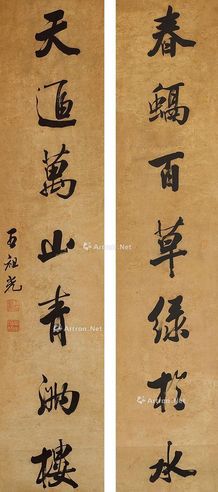 春螎百草綠於水
天逈萬山青滿樓
王祖光
Artron.Net
Artron.Net
Artron.Net
Artron.Net